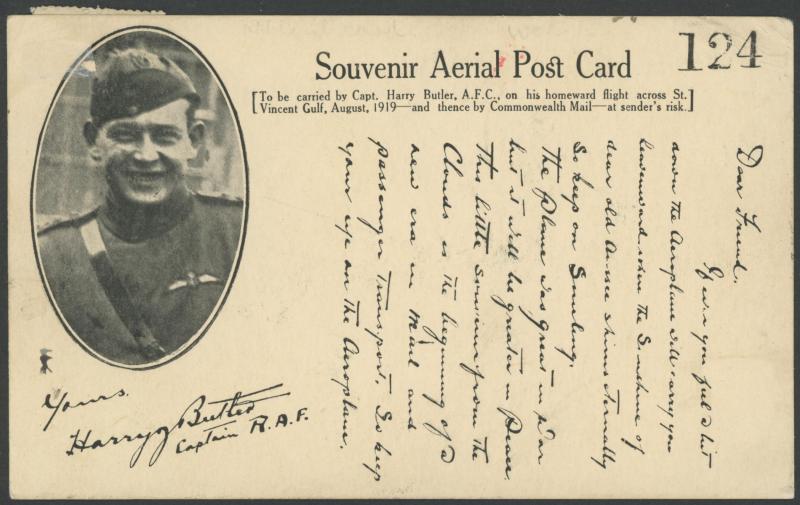 Souvenir Aerial Post Card
124
[To be carried by Capt. Harry Butler, A.F.C., on his homeward flight across St.
Vincent Gulf, August, 1919—and thence by Commonwealth Mail—at sender's risk.]
Dear Friend.
you feel a bit
down the Aeroplane will carry you
heavenward when the Sunshine of
dear old Aussie shines eternally
So keep on Smiling.
The Plane was great in War
but it will be greater in Peace.
This little souvenir from the
Clouds is the beginning of a
new era in Mail and
passenger transport. So keep
your eye on the Aeroplane.
Yours.
Harry J Butler
Captain R.A.F.